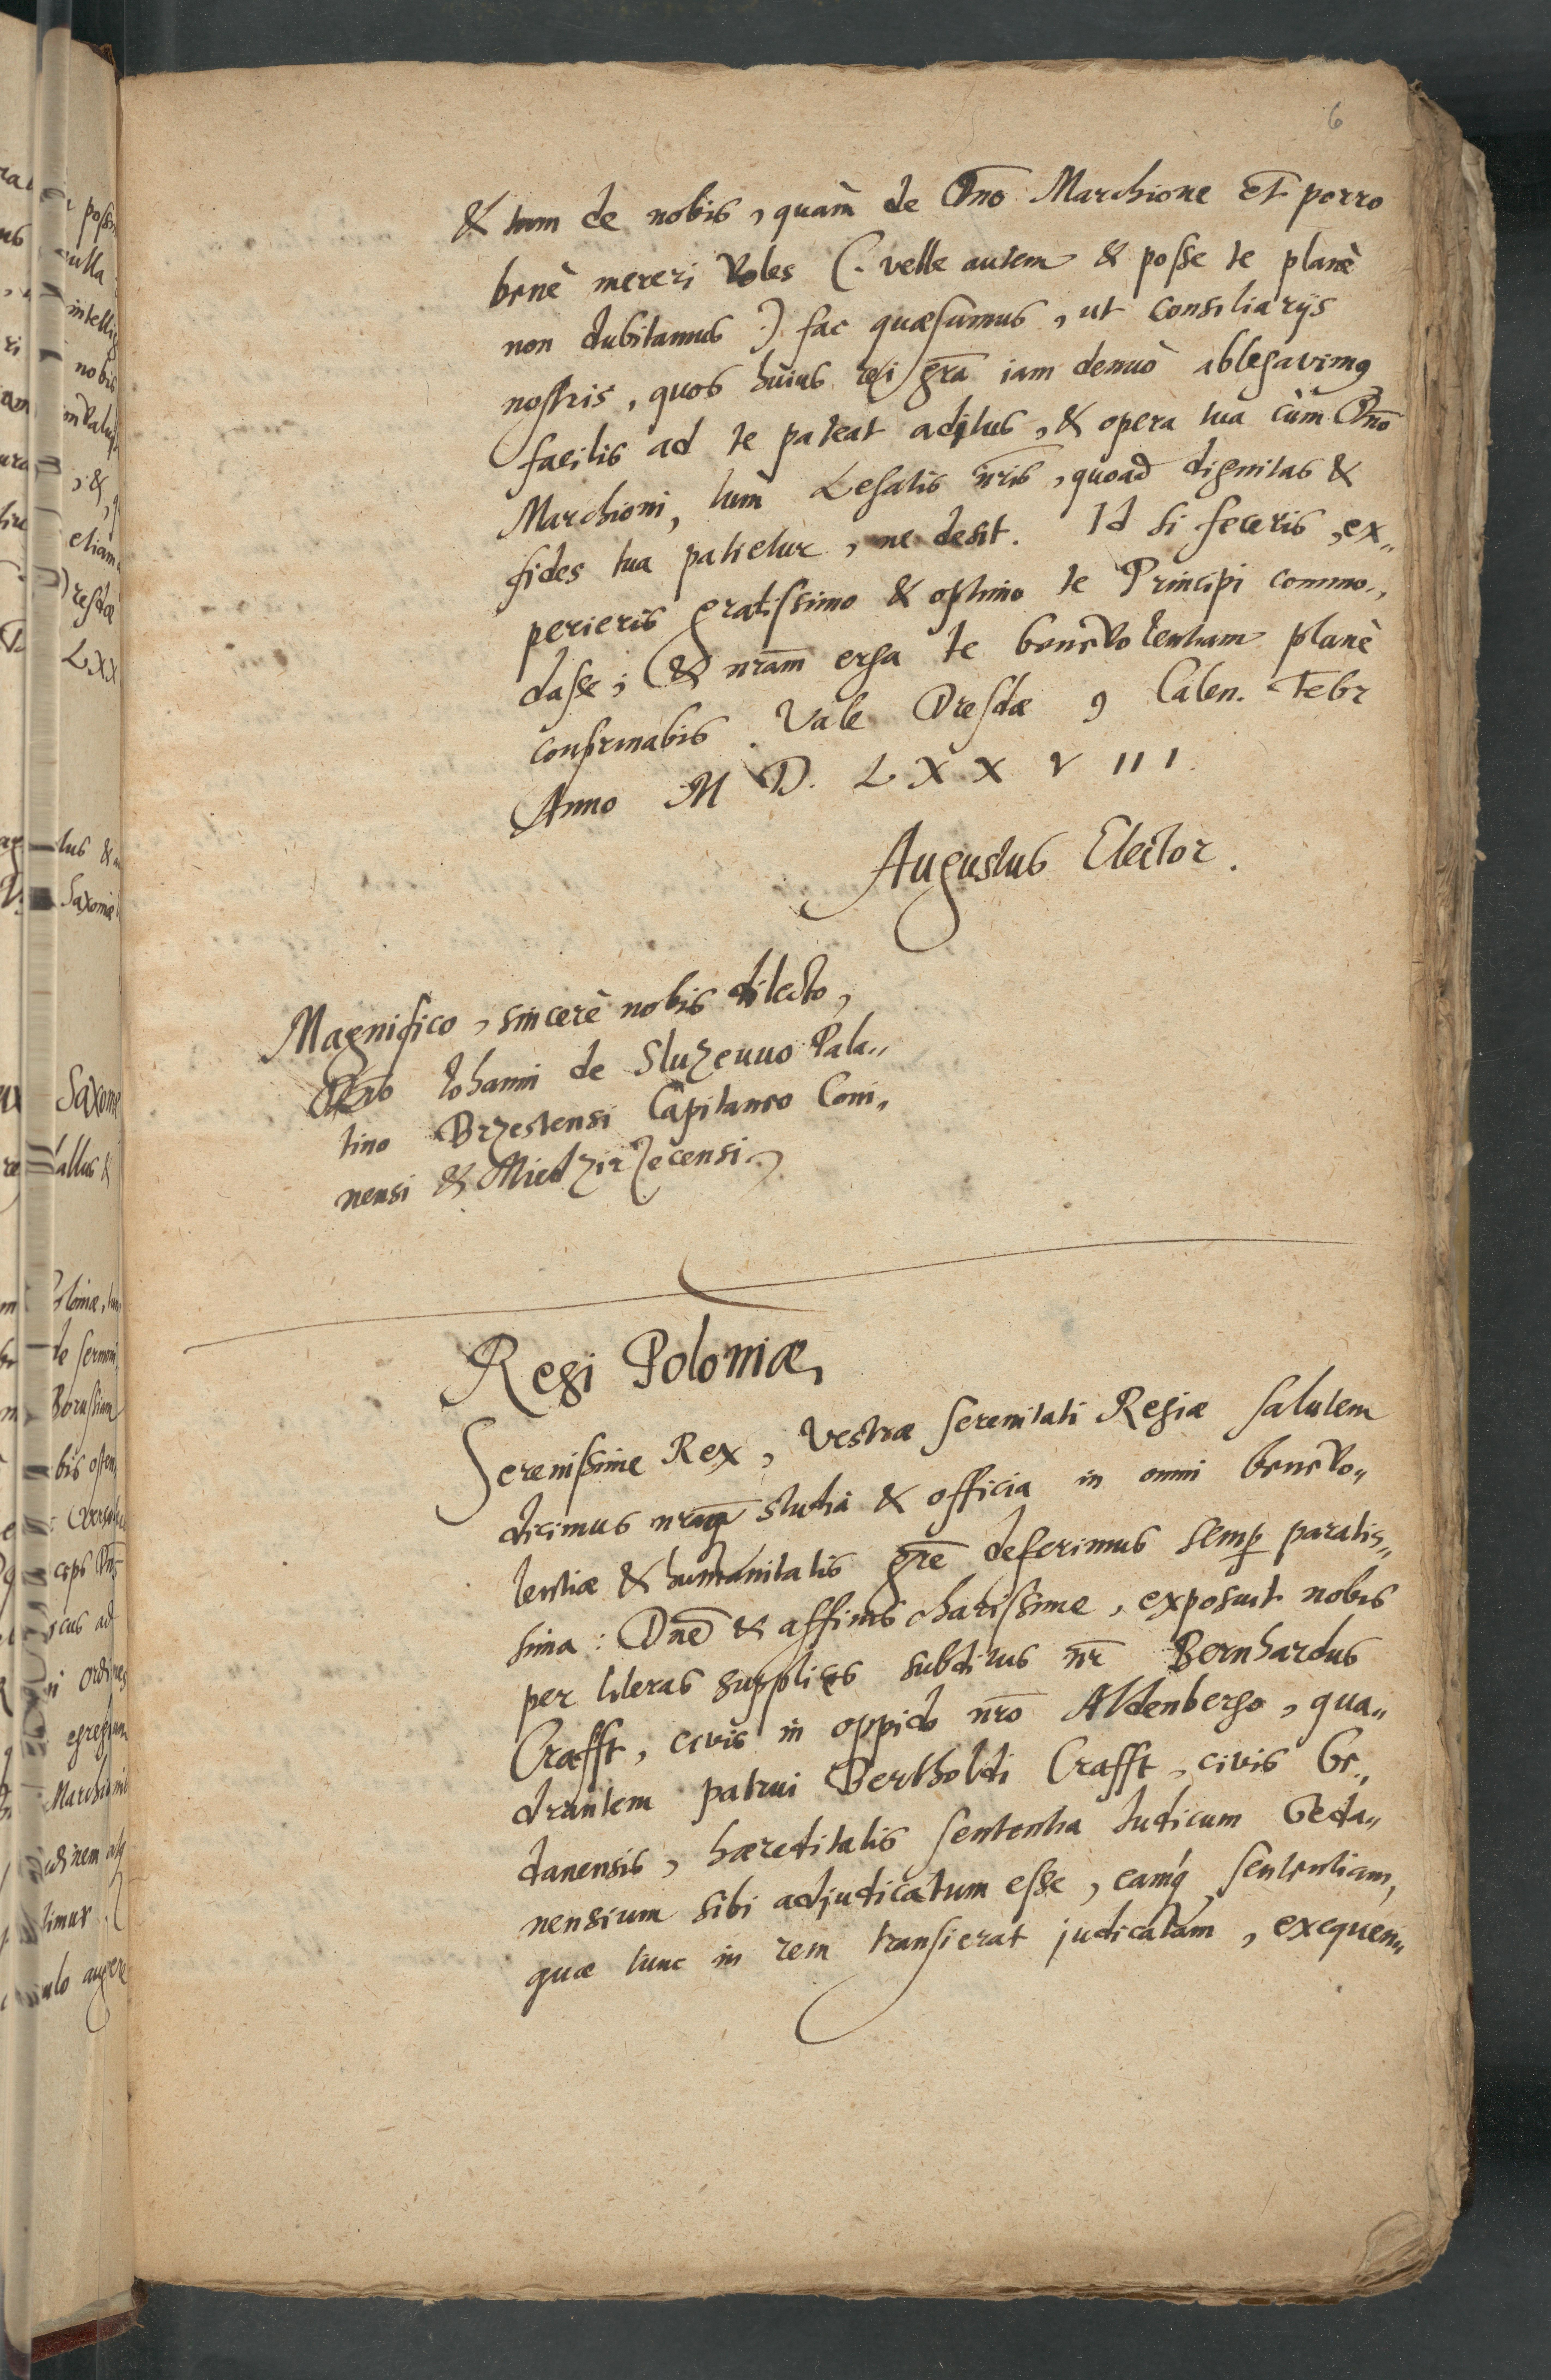 6
& tum de nobis, quam̀ de Dn̄o Marchione et porro
benè mereri voles (. velle autem & posse te planè
non dubitamus .) fac quæsumus, ut consiliarijs
nostris, quos huius rei gr̄a iam denuò ablegavimꝰ
facilis ad te pateat aditus, & opera tua cùm Dn̄o
Marchioni, tùm Legatis nr̄is, quoad dignitas &
fides tua patietur, ne desit. Id si feceris, ex„
perieris gratissimo & optimo te Principi commo„
dasse; & nr̄am erga te benevolentiam planè
confirmabis. Vale Dresdæ 9 Calen. Febr
Anno M D. L X X V III.
Augustus Elector.
Magnifico, sincerè nobis dilecto,
Dn̄o Iohanni de Sluzeuuo Pala„
tino Brzestensi Capitaneo Coni„
nensi & Miedzirzecensi
Regi Poloniæ,
Serenissime Rex, Vestræ Serenitati Regiæ salutem
dicimus nr̄aqꝫ studia & officia in omni benevo„
lentiæ & humanitatis gn̄e deferimus semꝑ paratis„
sima: Dn̄e & affinis charissime, exposuit nobis
per literas supplices subditus nr̄ Bernhardus
Crafft, civis in oppido nr̄o Aldenbergo, qua„
drantem patrui Bertholdi Crafft, civis Ge„
danensis, hæreditatis sententia Iudicum Geda„
nensium sibi adjudicatum esse, eamqꝫ sententiam,
quæ tunc in rem transierat judicatam, exequen„
intellig
nobis
etiam
LXX
Saxoniæ
Saxone
allus &
Poloniæ, tum
de sermoni
Borussiam
bis osten
egregium
Marchionis